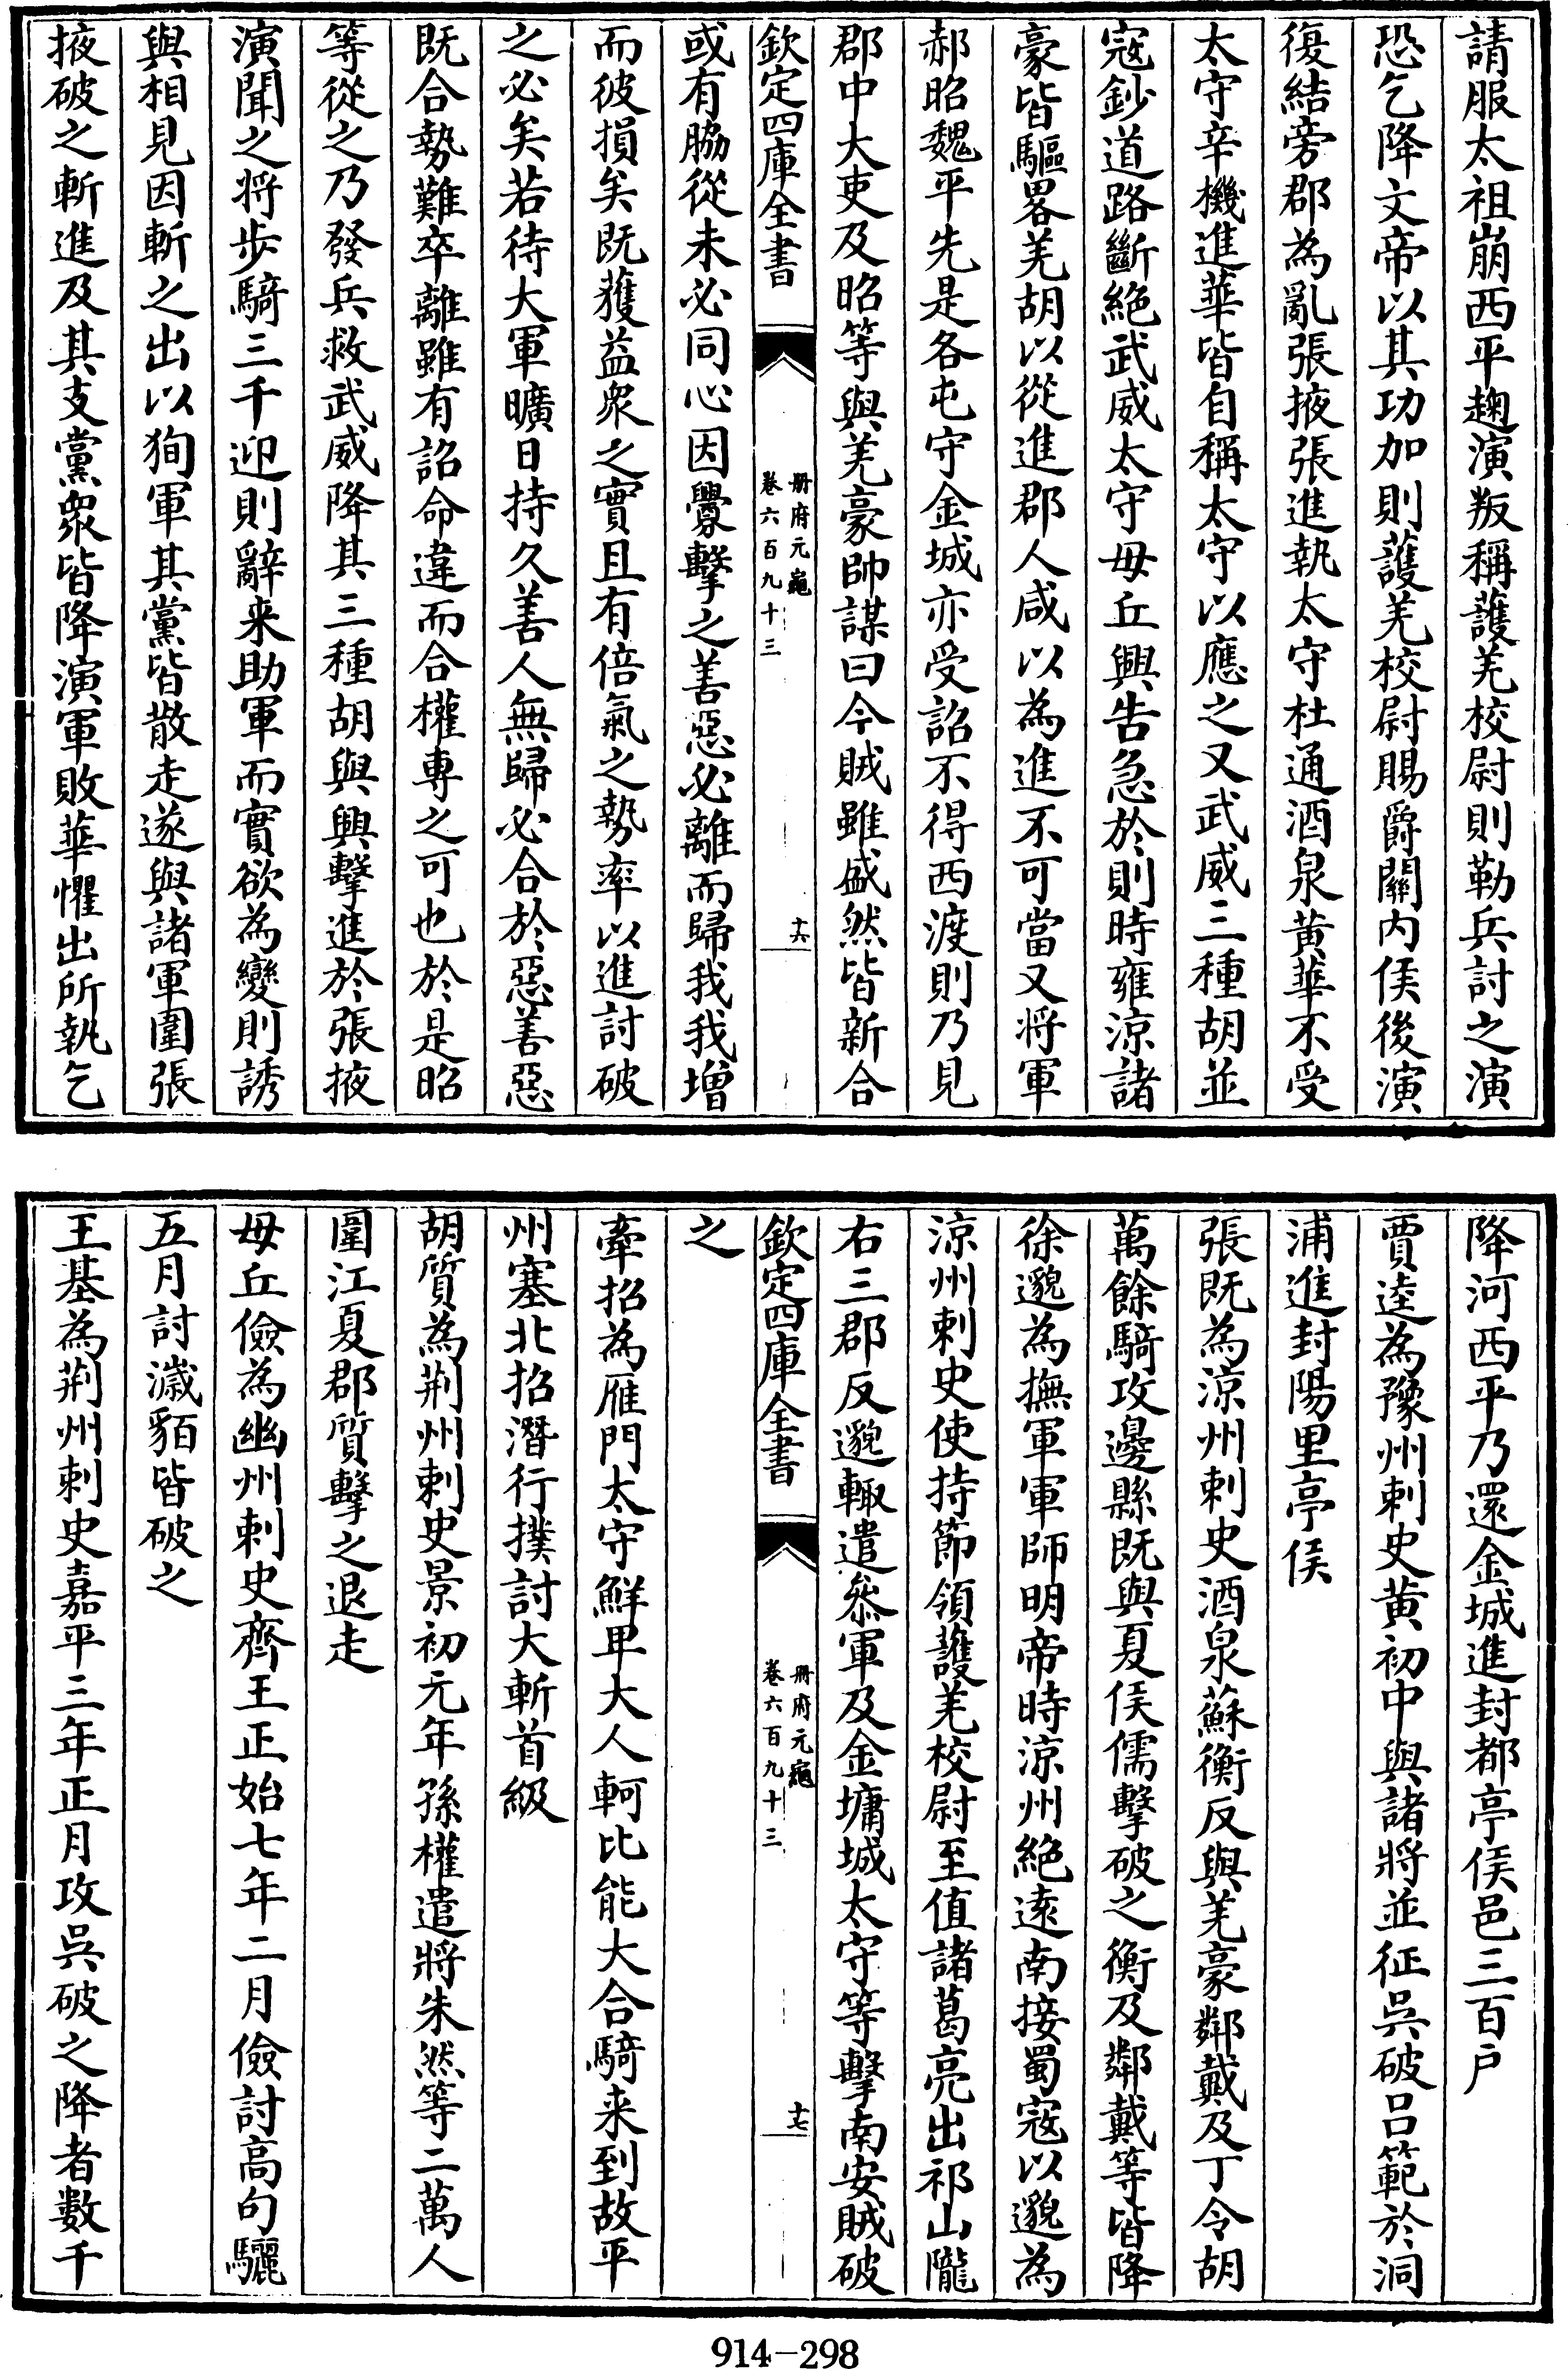 請服太祖崩西平麹演叛稱護羌校尉則勒兵討之演
恐乞降文帝以其功加則護羌校尉賜爵關内侯後演
復結旁郡為亂張掖張進執太守杜通酒泉黄華不受
太守辛機進華皆自稱太守以應之又武威三種胡並
寇鈔道路斷絶武威太守毋丘興告急於則時雍涼諸
豪皆驅畧羌胡以從進郡人咸以為進不可當又将軍
郝昭魏平先是各屯守金城亦受詔不得西渡則乃見
郡中大吏及昭等與羌豪帥謀曰今賊雖盛然皆新合
欽定四庫全書
册府元龜
卷六百九十三
十六
或有脇從未必同心因釁擊之善惡必離而歸我我增
而彼損矣既獲益衆之實且有倍氣之勢率以進討破
之必矣若待大軍曠日持久善人無歸必合於惡善惡
既合勢難卒離雖有詔命違而合權專之可也於是昭
等從之乃發兵救武威降其三種胡與興擊進於張掖
演聞之将步騎三千迎則辭来助軍而實欲為變則誘
與相見因斬之出以狥軍其黨皆散走遂與諸軍圍張
掖破之斬進及其支黨衆皆降演軍敗華懼出所執乞
降河西平乃還金城進封都亭侯邑三百户
賈逵為豫州刺史黄初中與諸將並征吳破吕範於洞
浦進封陽里亭侯
張既為涼州刺史酒泉蘇衡反與羌豪鄰戴及丁令胡
萬餘騎攻邊縣既與夏侯儒擊破之衡及鄰戴等皆降
徐邈為撫軍軍師明帝時涼州絶遠南接蜀寇以邈為
涼州刺史使持節領護羌校尉至值諸葛亮出祁山隴
右三郡反邈輙遣叅軍及金墉城太守等擊南安賊破
欽定四庫全書
册府元龜
卷六百九十三
十七
之
牽招為雁門太守鮮卑大人軻比能大合騎来到故平
州塞北招潛行撲討大斬首級
胡質為荆州刺史景初元年孫權遣將朱然等二萬人
圍江夏郡質擊之退走
毋丘儉為幽州刺史齊王正始七年二月儉討高句驪
五月討濊貊皆破之
王基為荆州刺史嘉平三年正月攻吳破之降者數千
914-298